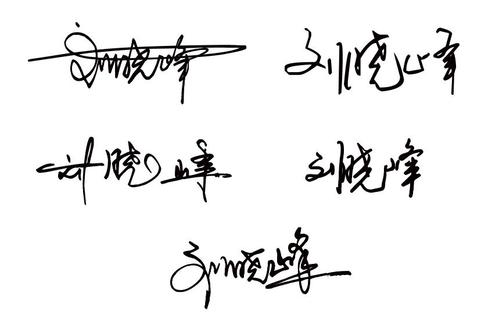 刘晓峰 刘晓峰
刘晓峰 刘晓峰
刘晓峰